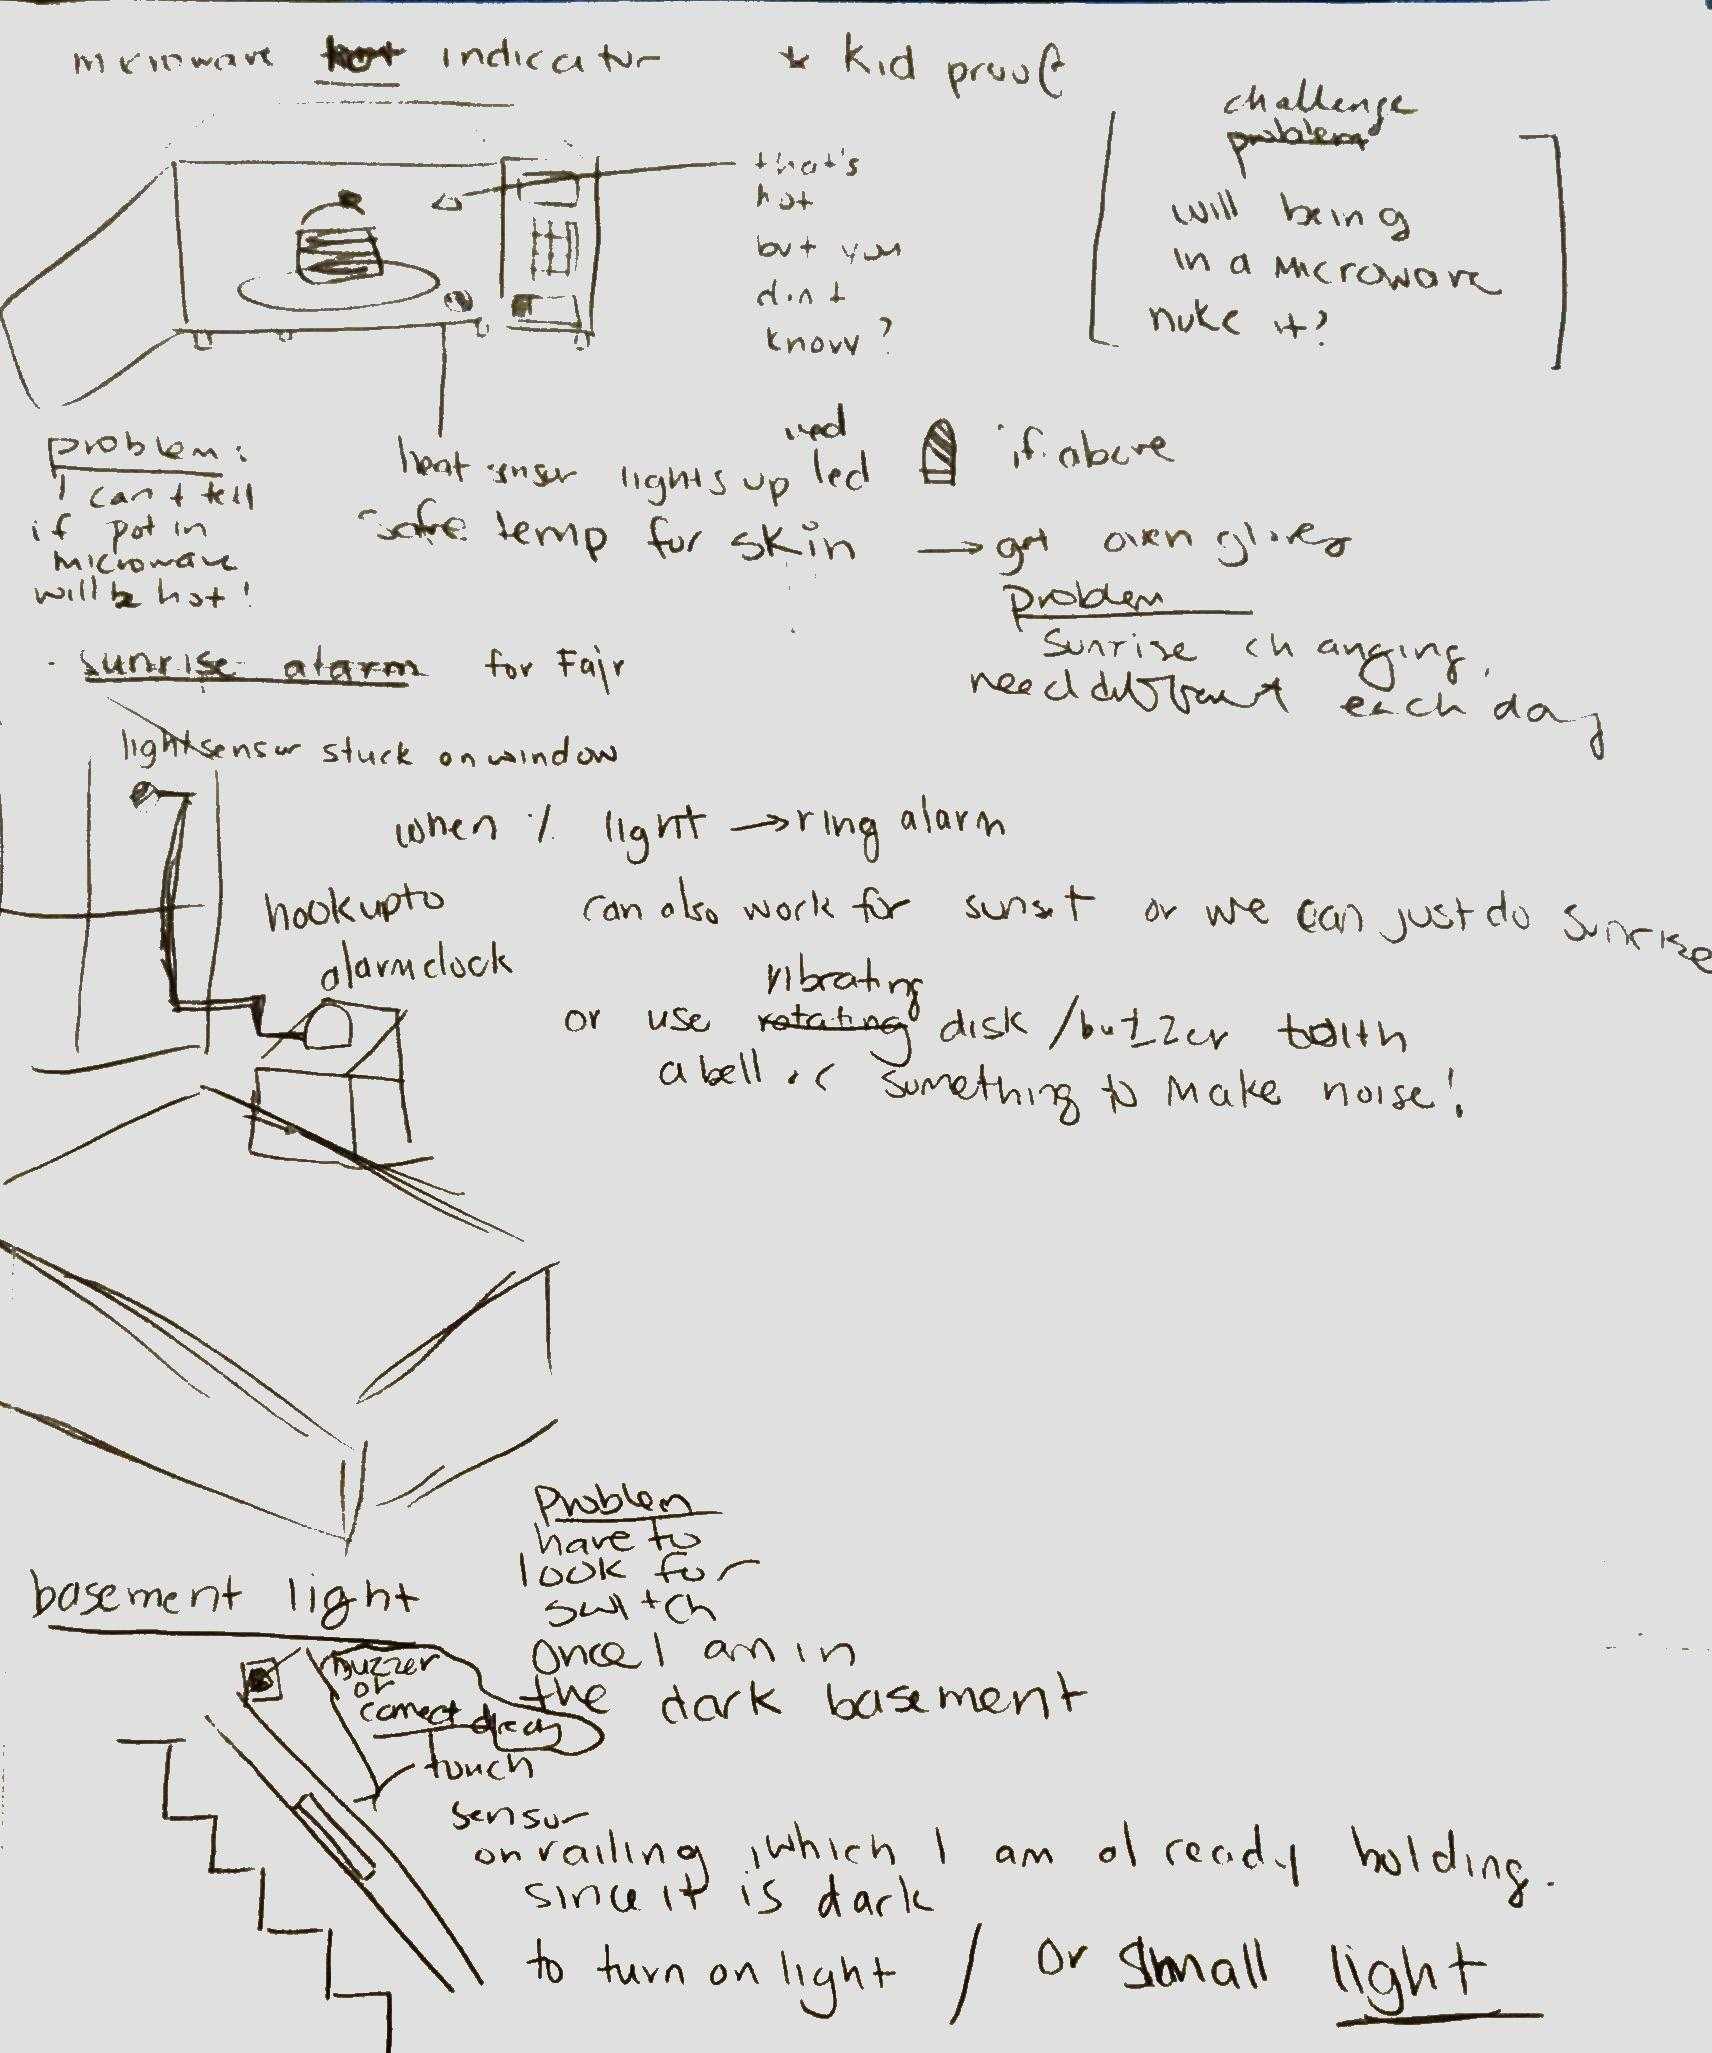 microwave hot indicator * kid proof
challenge
problem
will being
in a microwave
nuke it?
that's
hot
but you
dint
know?
problem:
I can't tell
if pot in
microwave
will be hot!
heat sensor lights up red led if above
safe temp for skin → get oven gloves
problem
sunrise changing,
need different each day
sunrise alarm for Fajr
light sensor stuck on window
when % light → ring alarm
hook up to
alarm clock
can also work for sunset or we can just do sunrise
vibrating
or use rotating disk / buzzer
a bell or something to make noise!
basement light
Problem
have to
look for
switch
once I am in
the dark basement
buzzer
or
connect
touch
sensor
on railing, which I am already holding.
since it is dark
to turn on light / or small light